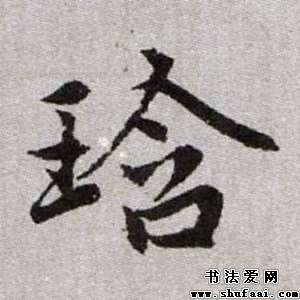 琀
书法爱网
www.shufaai.com